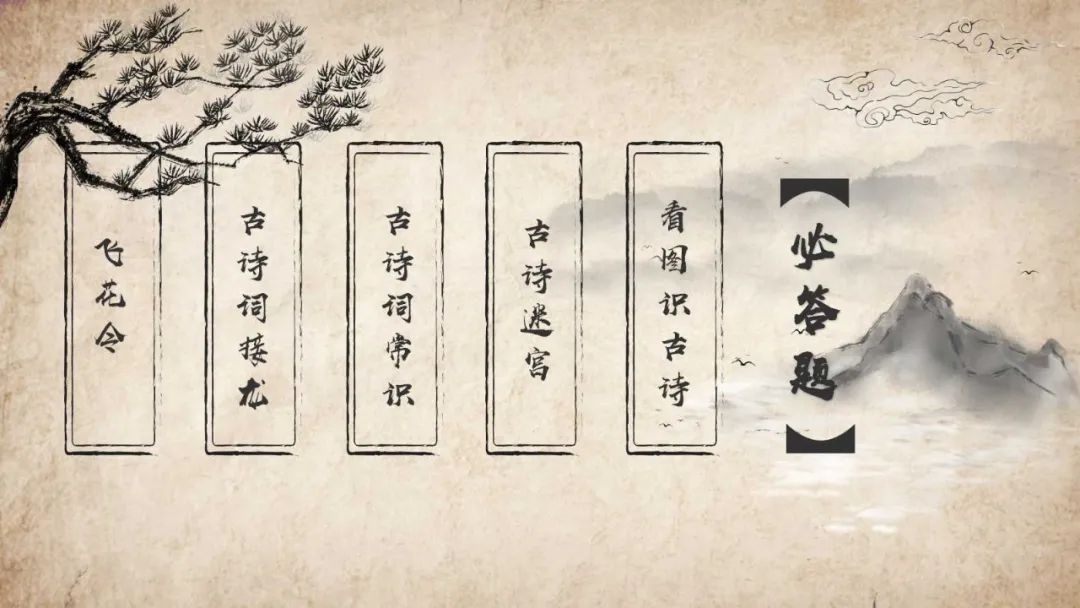 【必答题】
看图识古诗
古诗迷宫
古诗词常识
古诗词接龙
飞花令